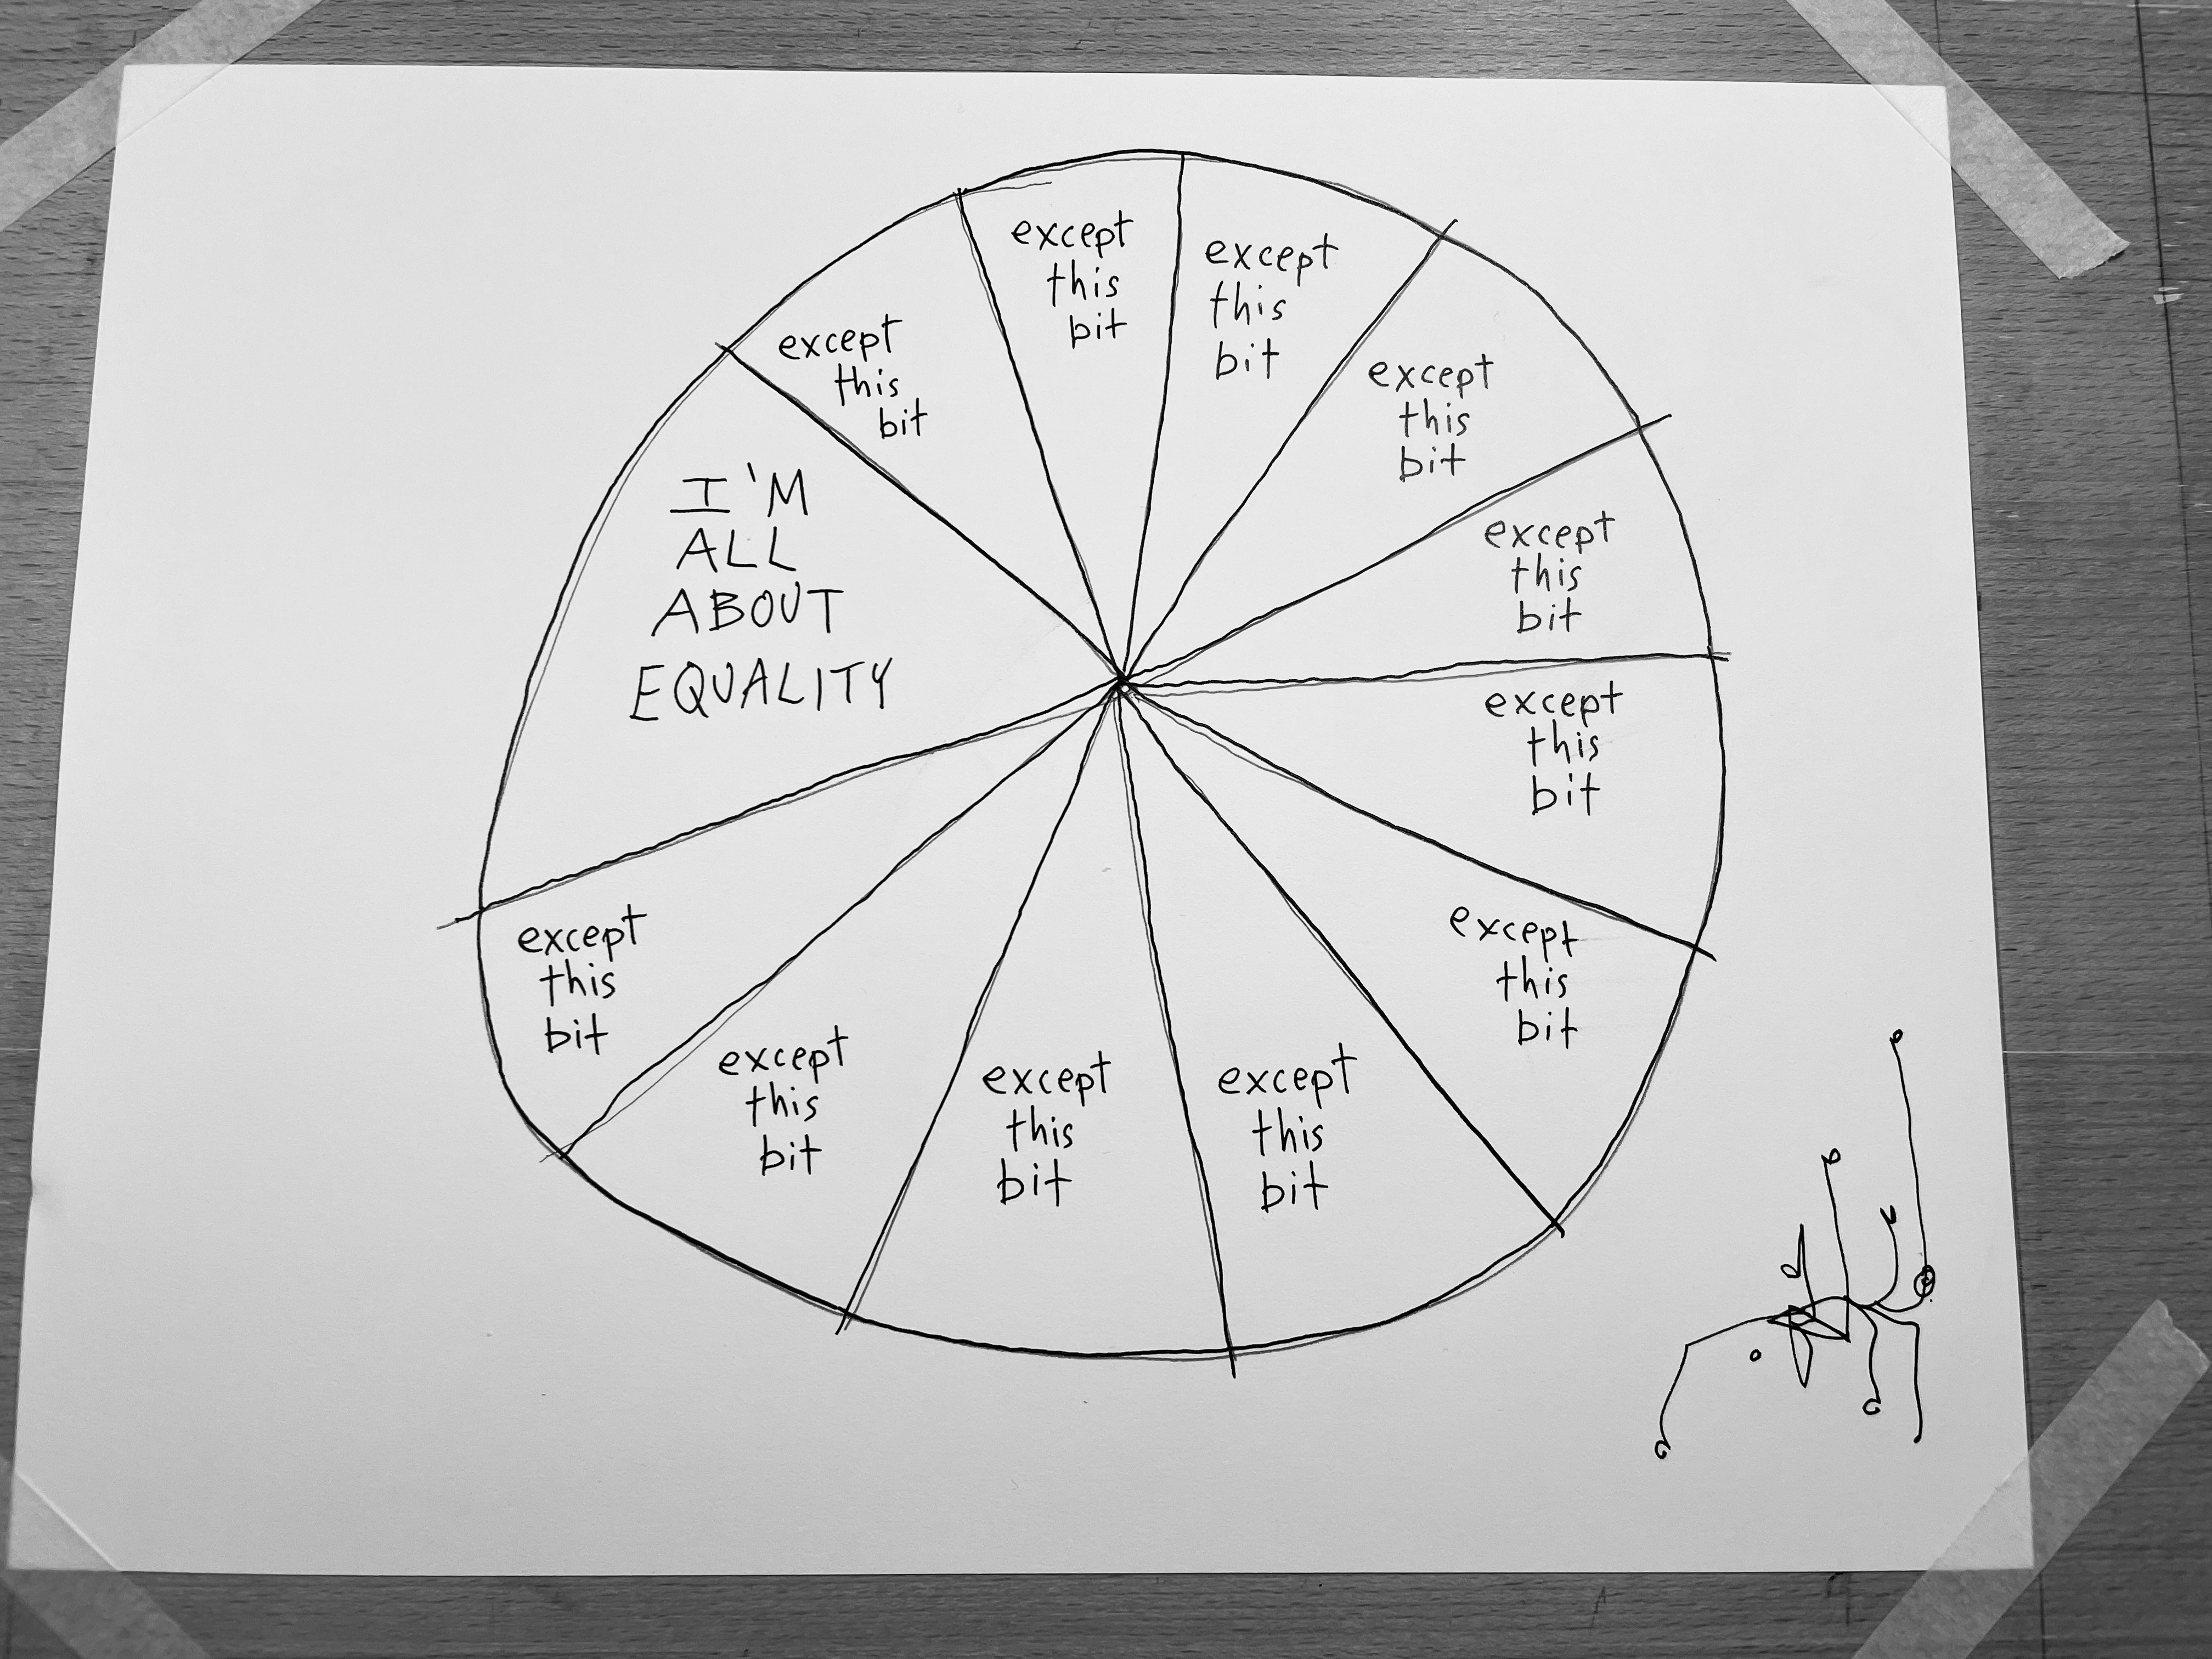 I'M
ALL
ABOUT
EQUALITY
except
this
bit
except
this
bit
except
this
bit
except
this
bit
except
this
bit
except
this
bit
except
this
bit
except
this
bit
except
this
bit
except
this
bit
except
this
bit